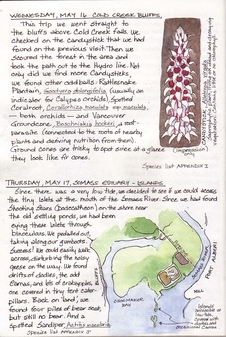 WEDNESDAY, MAY 16 COLD CREEK BLUFFS.
This trip we went straight to
the bluffs above Cold Creek Falls. We
checked on the Candystick that we had
found on the previous visit. Then we
scoured the forest in the area and
took the path out to the Hydro line. Not
only did we find more Candysticks,
we found other oddballs: Rattlesnake
Plantain, Goodyera oblongifolia (usually an
indicator for Calypso orchids), Spotted
Coralroot,
— both orchids — and Vancouver
Groundcone, Boschniakia hookeri, a root-
parasite (connected to the roots of nearby
plants and deriving nutrition from them).
Ground cones are frisky to spot since at a glance
they look like fir cones.
Species list APPENDIX I
THURSDAY, MAY 17, SOMASS ESTUARY - ISLANDS
Since there was a very low tide, we decided to see if we could access
the tiny islets at the mouth of the Somass River. Since we had found
Shooting Stars (Dodecatheon) on the shore near
the old settling ponds, we had been
eying those islets through
binoculars. We pedalled out,
taking along our gumboots.
Success! We could easily walk
across, disturbing the noisy
geese on the way. We found
drifts of sedges, the odd
Camas, and lots of crabapples, all
are covered in tiny tent cater-
pillars. Back on 'land', we
found four piles of bear scat,
but still no bear. And a
Spotted Sandpiper Actitis macularia.
Species list APPENDIX J
PORT ALBERNI
MILL